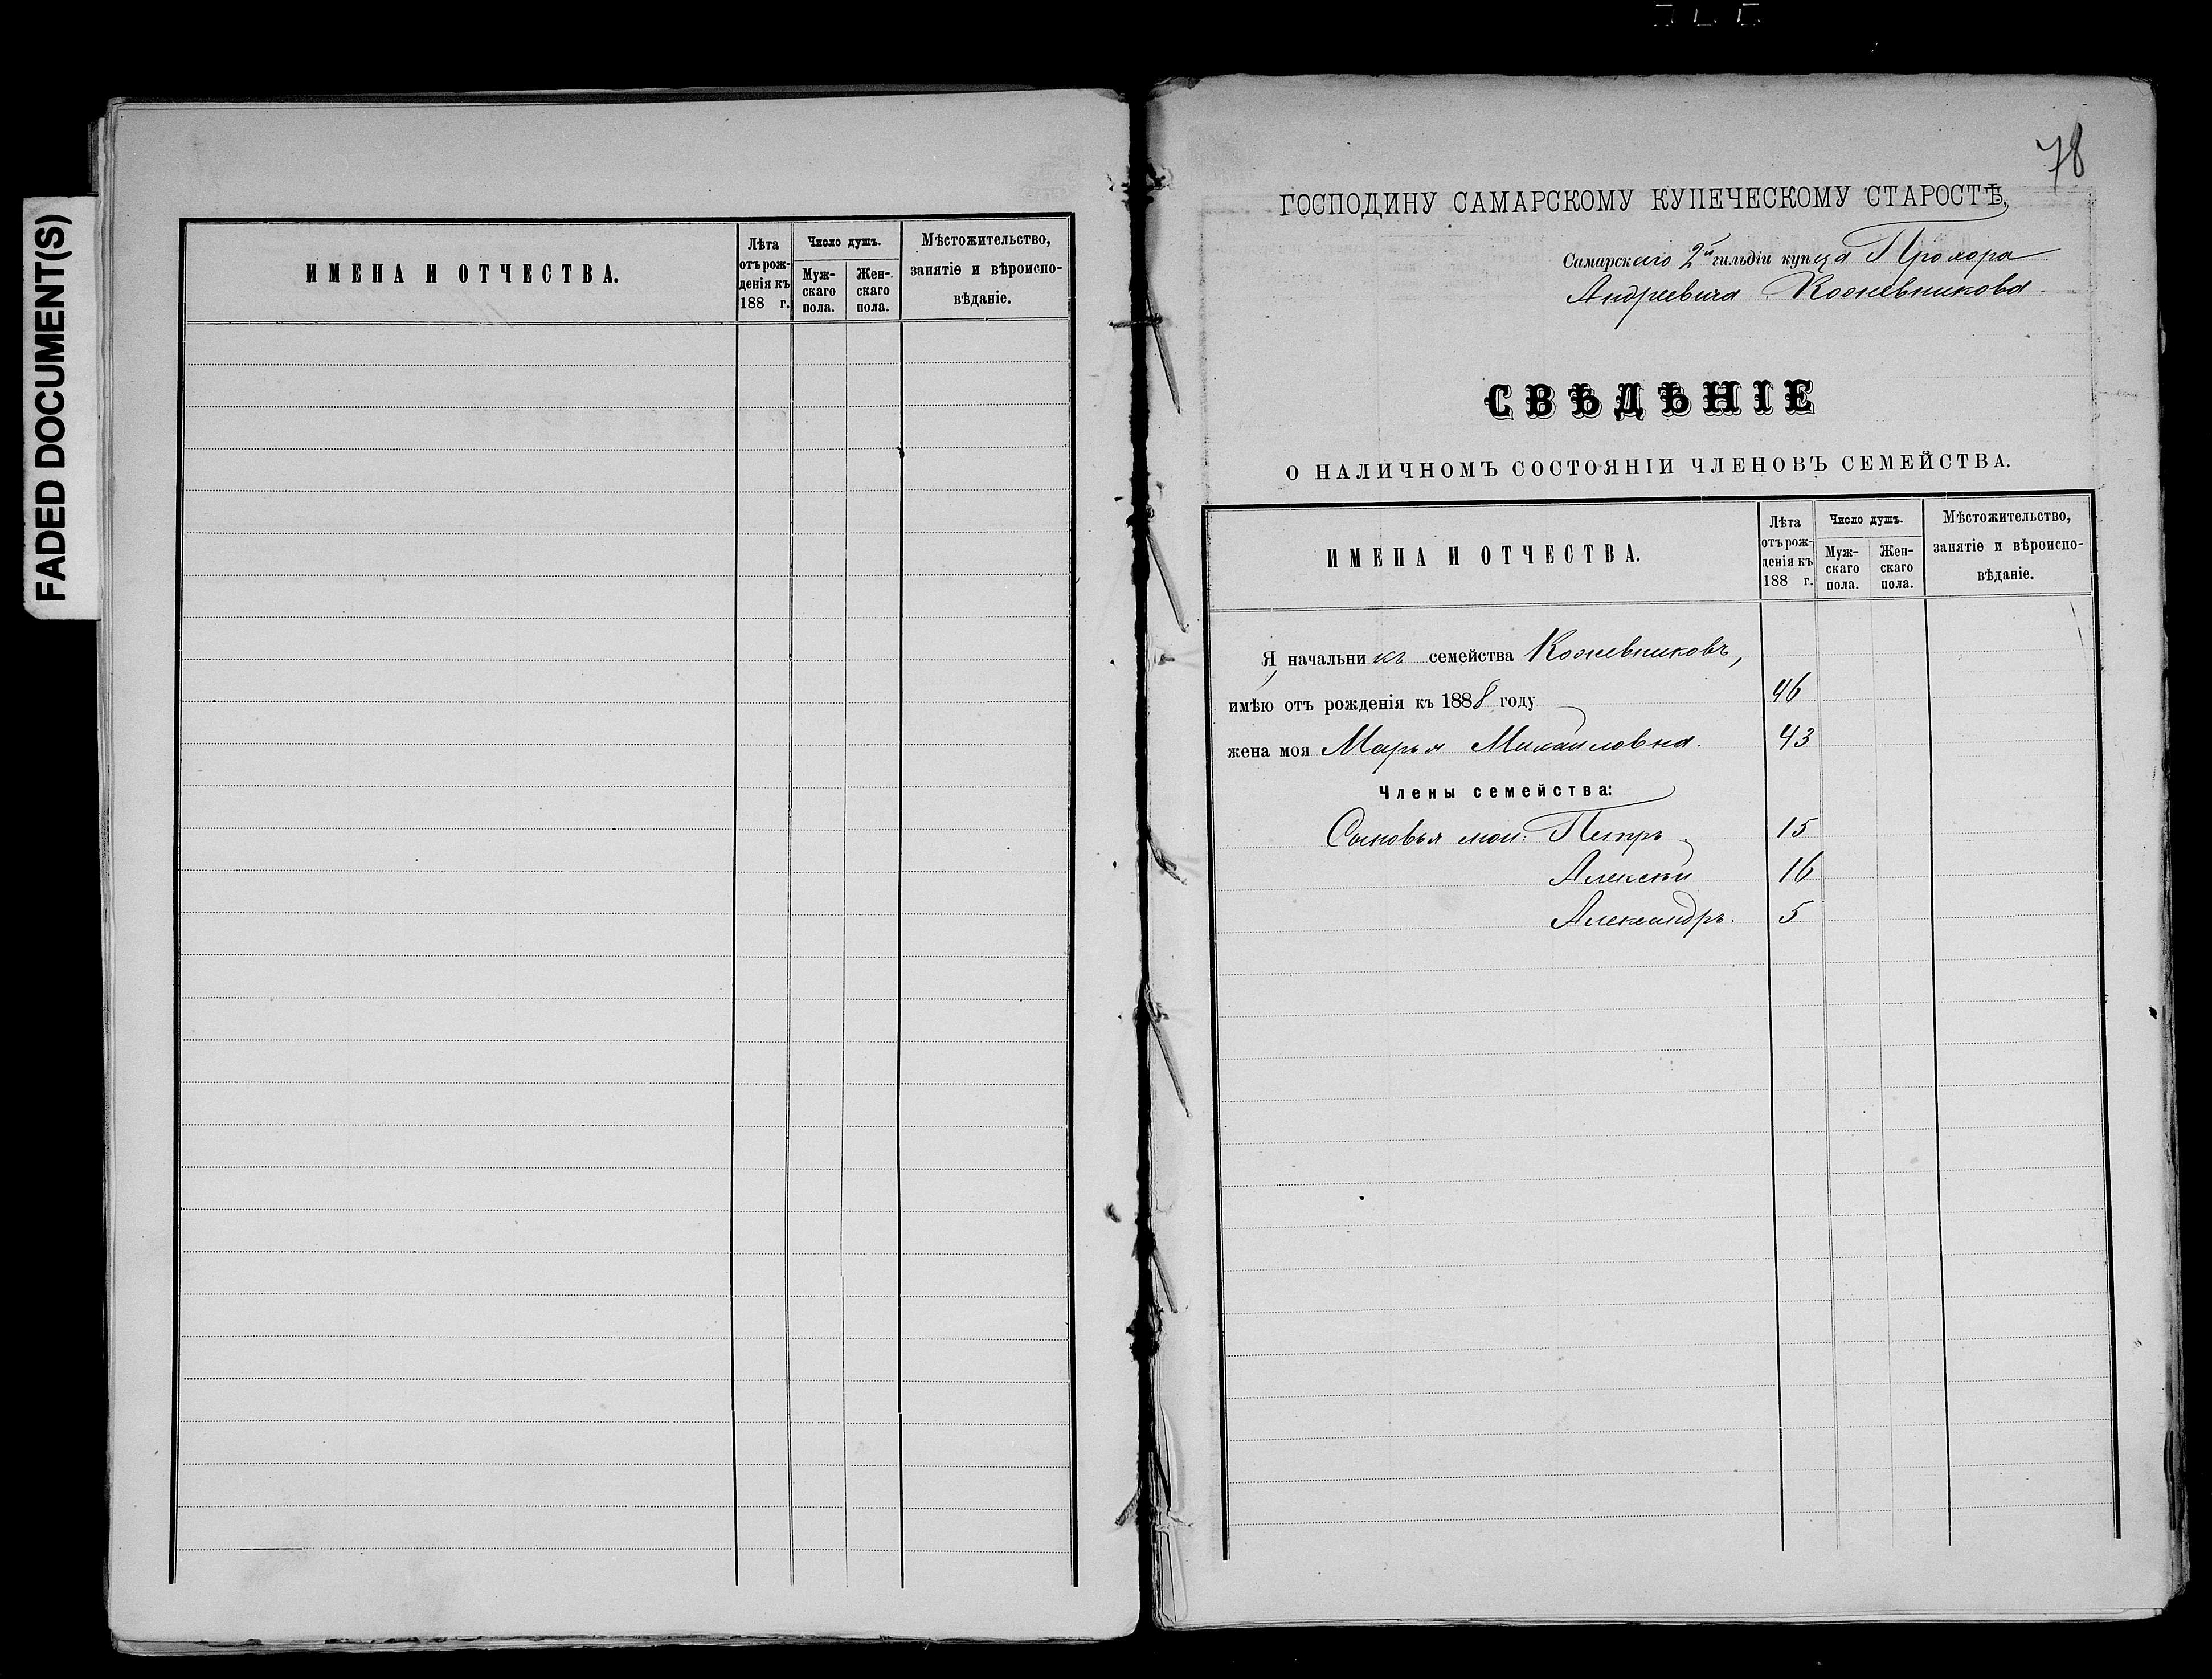 FADED DOCUMENT(S)
ИМЕНА И ОТЧЕСТВА.
Лѣта отъ рожденія къ 188 г.
Число душъ.
Мужскаго пола.
Женскаго пола.
Мѣстожительство, занятіе и вѣроисповѣданіе.
78
ГОСПОДИНУ САМАРСКОМУ КУПЕЧЕСКОМУ СТАРОСТѢ,
Самарскаго 2й гильдіи купца Прохора
Андреевича Кожевникова
СВѢДѢНІЕ
О НАЛИЧНОМЪ СОСТОЯНІИ ЧЛЕНОВЪ СЕМЕЙСТВА.
ИМЕНА И ОТЧЕСТВА.
Лѣта отъ рожденія къ 188 г.
Число душъ.
Мужскаго пола.
Женскаго пола.
Мѣстожительство, занятіе и вѣроисповѣданіе.
Я начальникъ семейства Кожевниковъ,
имѣю отъ рожденія къ 1888 году 46
жена моя Марья Михайловна. 43
Члены семейства:
Сыновья мои: Петръ 15
Алексѣй 16
Александръ. 5